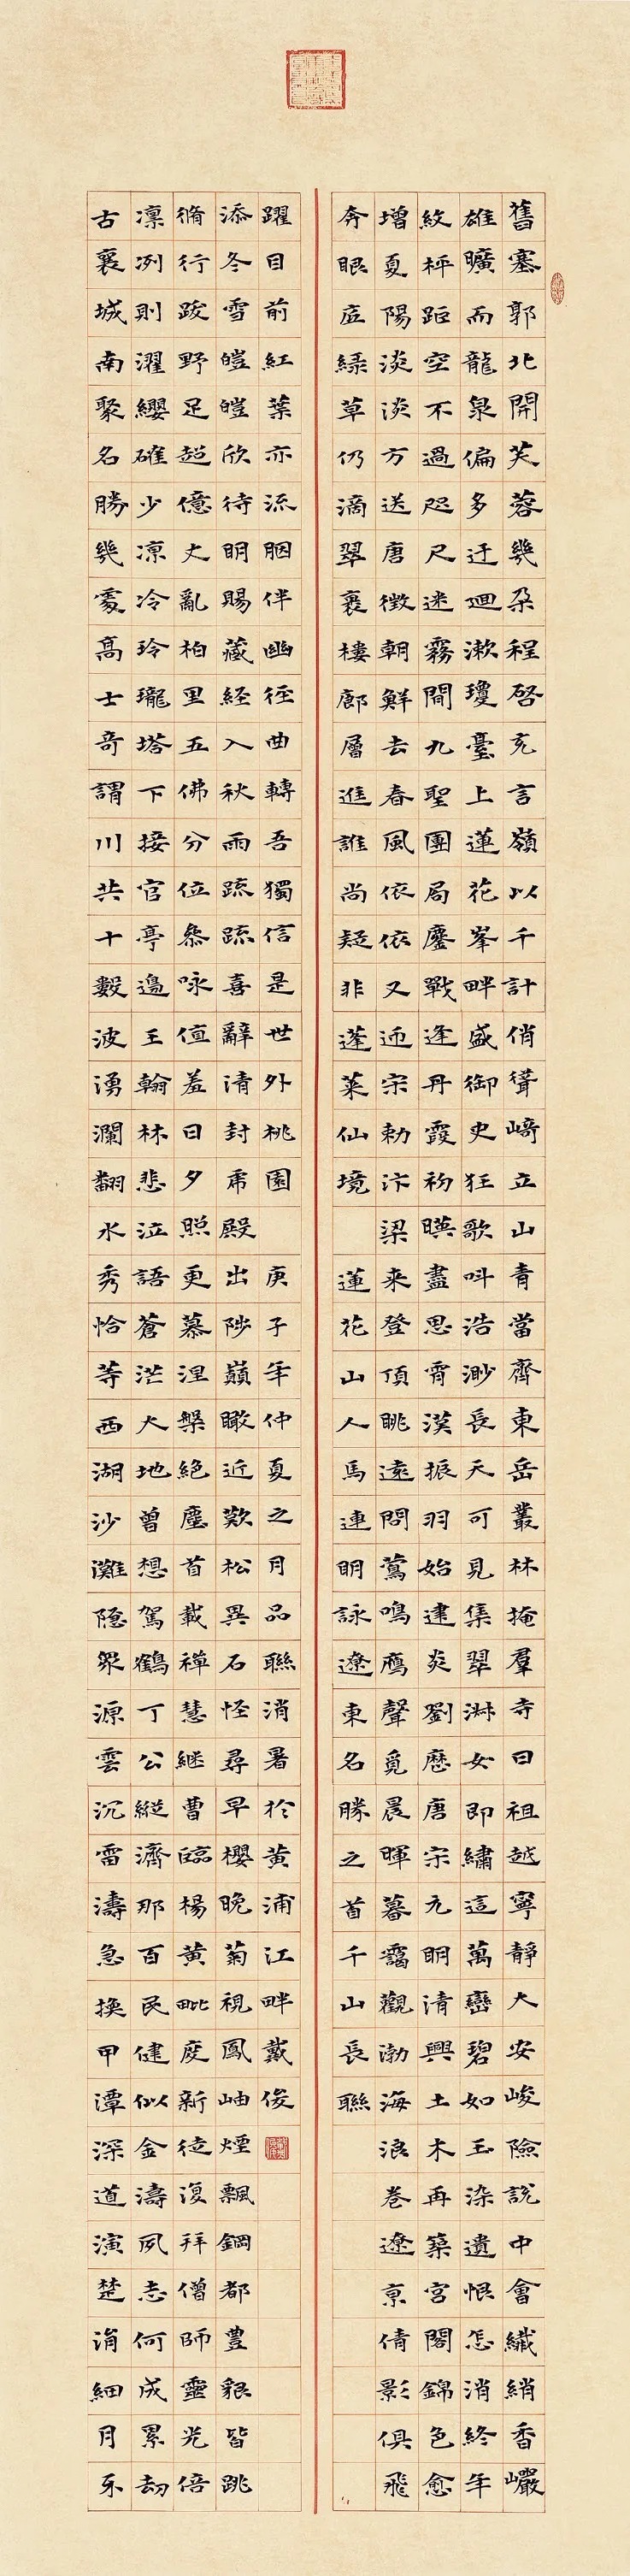 舊塞郭北開芙蓉幾朵程啓充言嶺以千計俏聳崎立山青當齊東岳叢林掩羣寺曰祖越寧靜大安峻險說中會纖綃香巖
雄曠而龍泉偏多迂迴漱瓊臺上蓮花峯畔盛御史狂歌呌浩渺長天可見集翠湫女即繡這萬巒碧如玉染遺恨怎消終年
紋枰距空不過咫尺迷霧間九聖圍局鏖戰逢丹霞初暎盡思霄漢振羽始建炎劉歷唐宗元明清興土木再築宮閣錦色愈
增夏陽淡淡方送唐徵朝鮮去春風依依又迎宋勅汴梁来登頂眺遠問鶯鳴鴈聲覓晨暉暮靄觀渤海浪卷遼京倩影俱飛
奔眼底綠草仍滴翠裏樓廊層進誰尚疑非蓬萊仙境
蓮花山人馬連明詠遼東名勝之首千山長聯
古襄城南聚名勝幾處高士奇謂川共十數波湧瀾翻水秀恰等西湖沙灘隱眾源雲沉雷濤急換甲潭深道演楚涓細月牙
凜冽則濯纓確少凉冷玲瓏塔下接官亭邊王翰林悲泣語蒼茫大地曾想駕鶴丁公縱濟那百民健似金濤夙志何成累劫
脩行跋野足超億丈亂柏里五佛分位叅咏值羞日夕照更慕涅槃絕塵首載禪慧継曹臨楊黃毗度新徒復拜僧師靈光倍
添冬雪皚皚欣待明賜藏経入秋雨疏疏喜辭清封帝殿出陟巔瞰近歎松異石怪尋早櫻晚菊視鳳岫煙飄鋼都豊貌皆跳
躍目前紅葉亦流胭伴幽徑曲轉吾獨信是世外桃園
庚子年仲夏之月品聯消暑於黃浦江畔戴俊